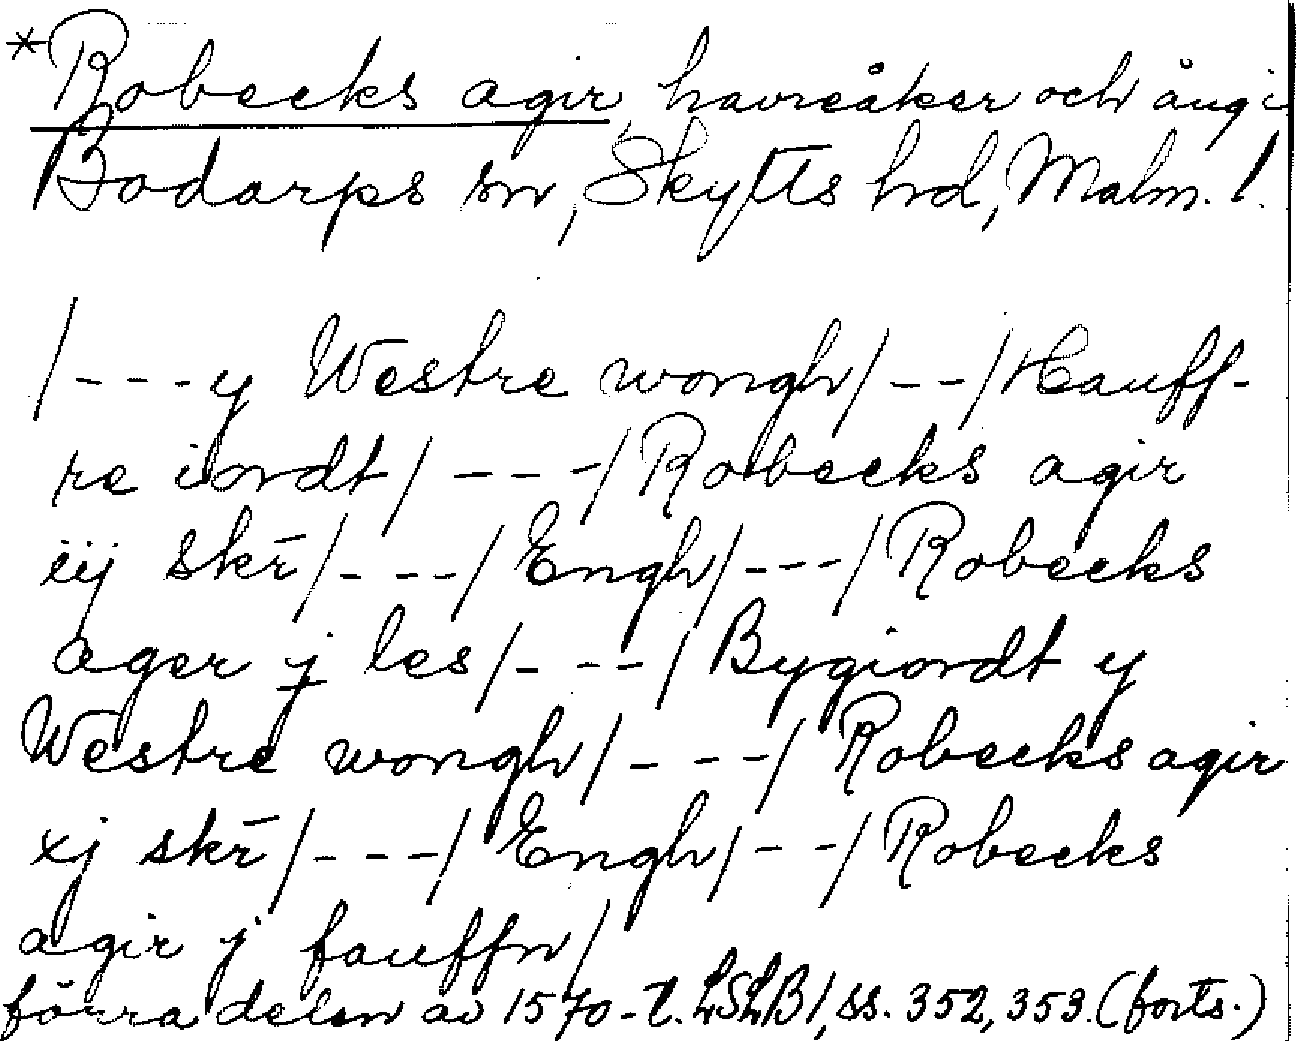 *Robecks agir, havreåker och äng i
Bodarps sn, Skytts hd, Malm. l.
/---y Westre wongh/--/Hauff-
re iordt/---/Robecks agir
iij skr̄/---/Engh/---/Robecks
ager j les/---/Bygiordt y
Westre wongh/---/Robecks agir
xj skr̄/---/Engh/--/Robecks
agir j fauffn/
förra delen av 1570-t. LSLB1, ss. 352, 353. (forts.)